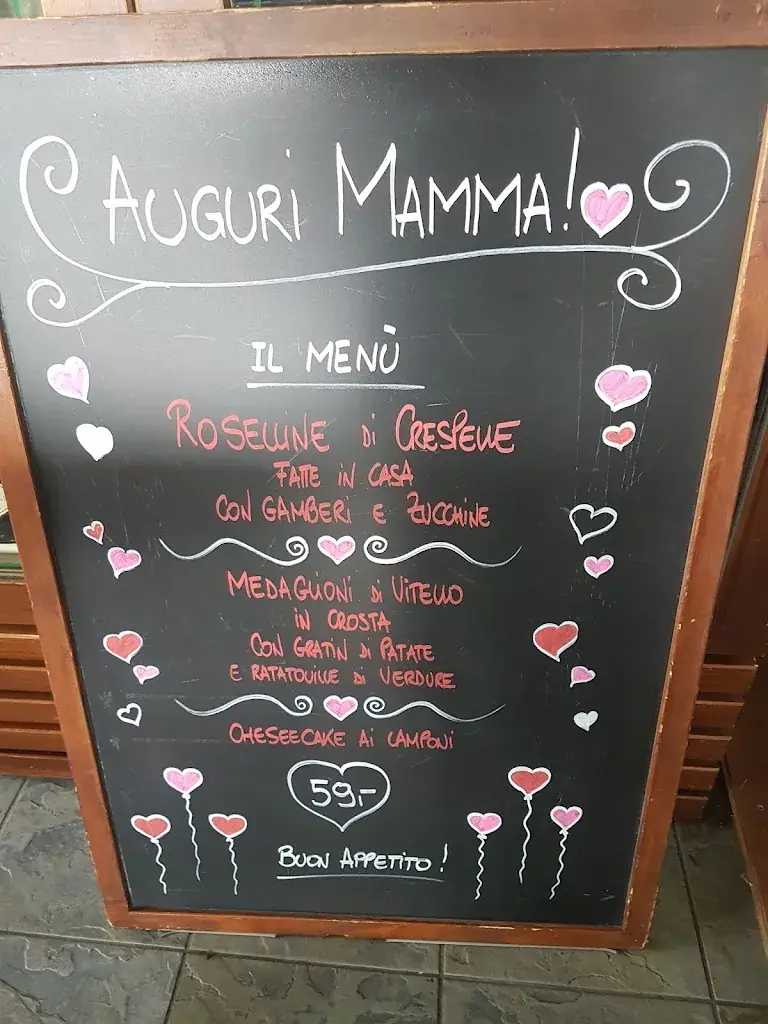 AUGURI MAMMA!
IL MENÙ
ROSELLINE DI CRESPELLE
FATTE IN CASA
CON GAMBERI E ZUCCHINE
MEDAGLIONI DI VITELLO
IN CROSTA
CON GRATIN DI PATATE
E RATATOUILLE DI VERDURE
CHESEECAKE AI LAMPONI
59.-
BUON APPETITO!